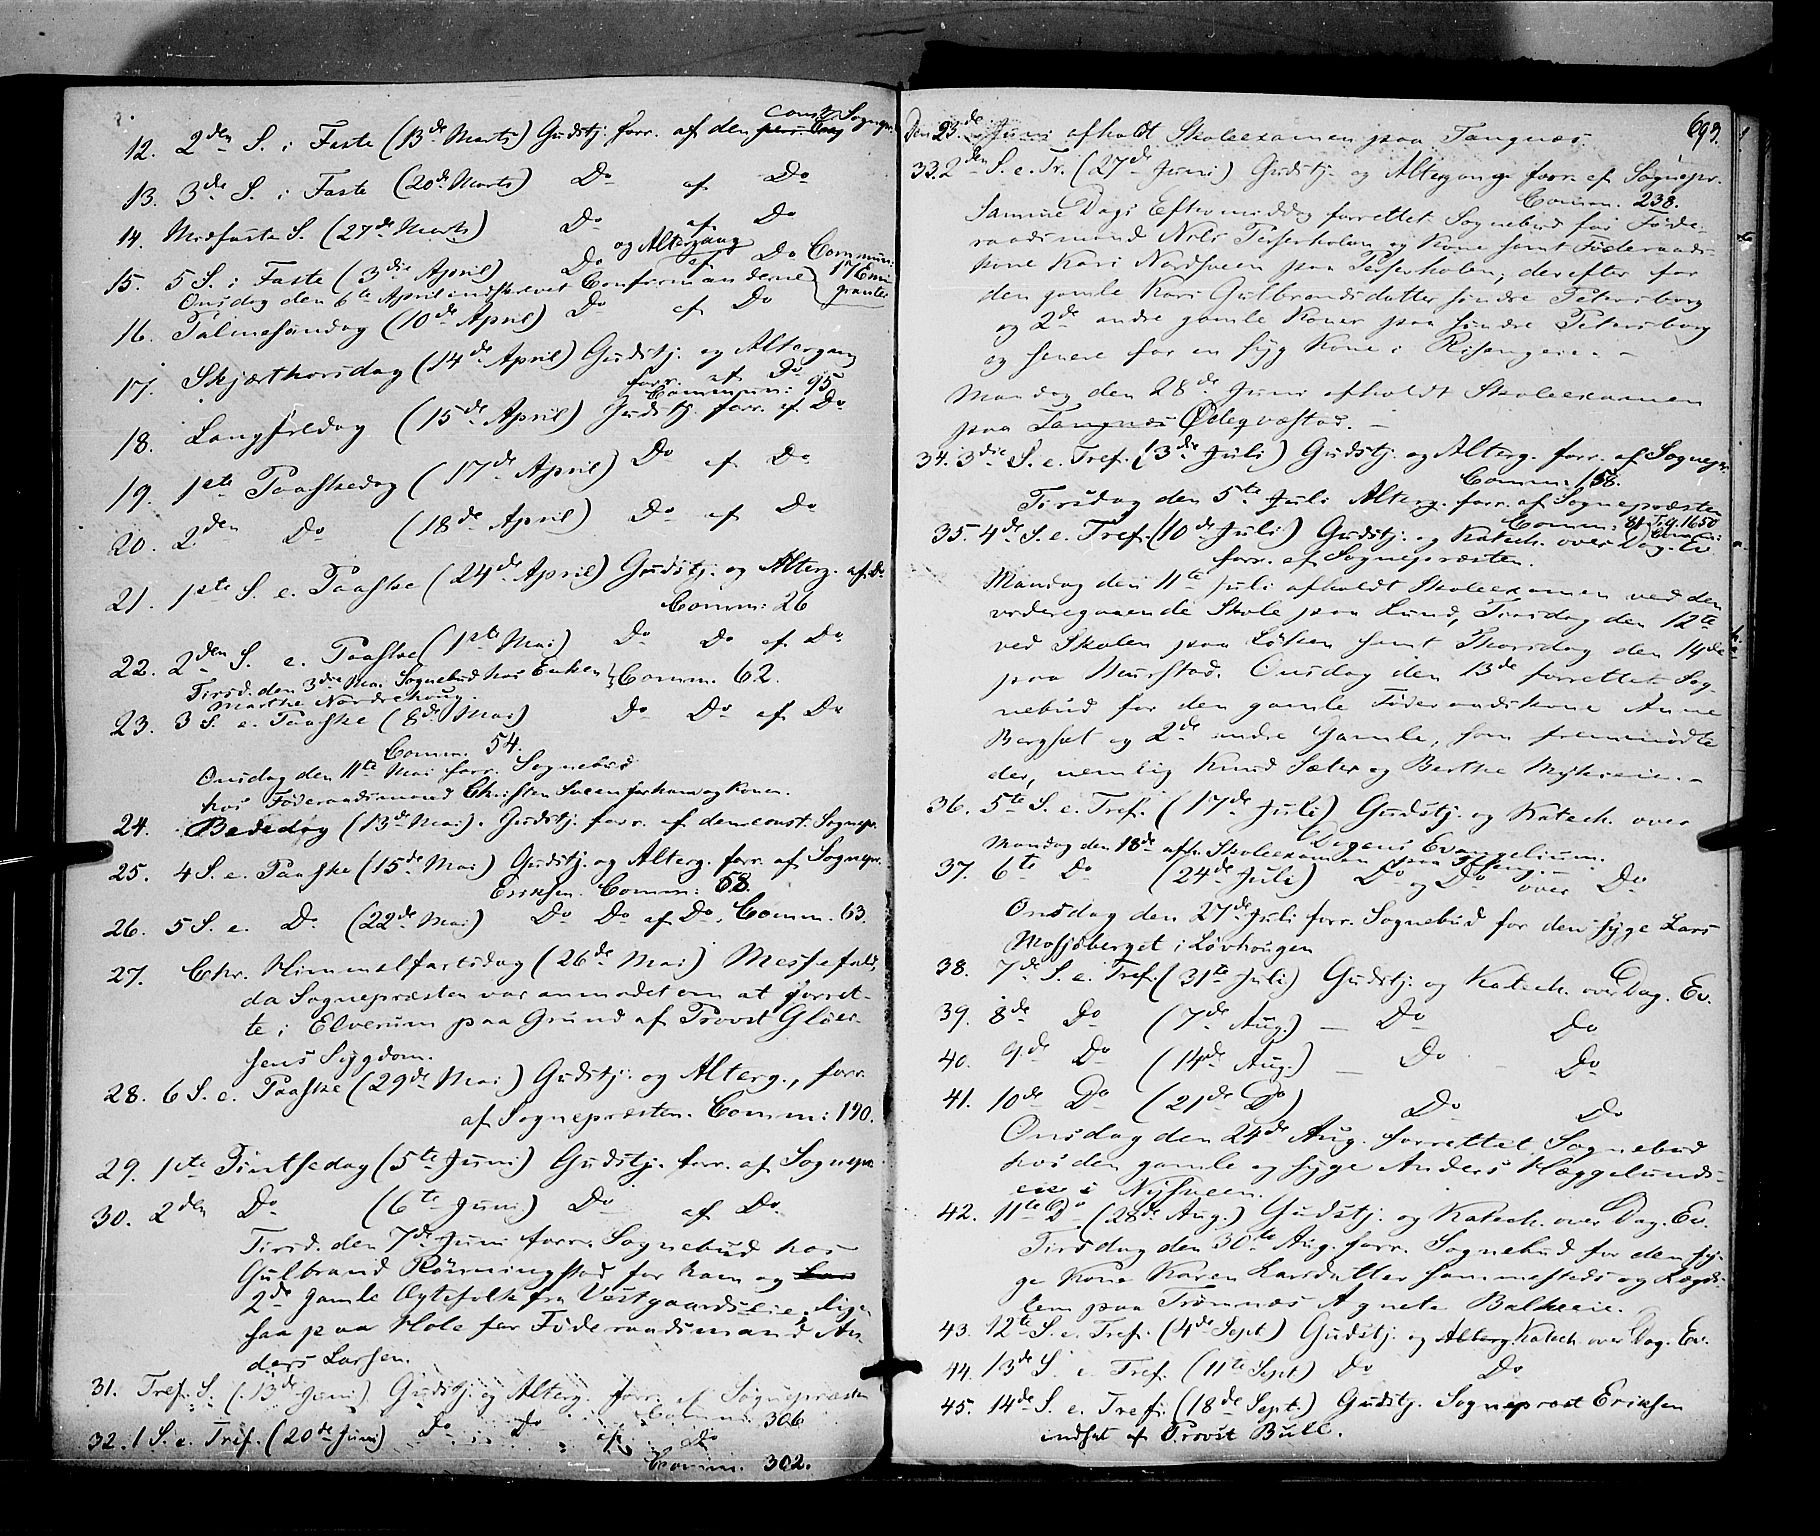 12. 2den S. i Faste (13de Marts) Gudstj. forr. af den const. Sognepr.
13. 3de S. i Faste (20de Marts) Do af Do
14. Midfaste S. (27de Marts) Do af Do
15. 5 S. i Faste (3die April) Do og Altergang af Do Commun: 17 Emigranter
Onsdag den 6te April indskrevet Confirmanderne
16. Palmesøndag (10de April) Do af Do
17. Skjærthorsdag (14de April) Gudstj. og Altergang
forr. af Do
Commun: 95
18. Langfredag (15de April) Gudstj. forr. af Do
19. 1ste Paaskedag (17de April) Do af Do
20. 2den Do (18de April) Do af Do
21. 1ste S. e. Paaske (24de April) Gudstj. og Alterg. af Do
Comm: 26
22. 2den S. e. Paaske (1ste Mai) Do Do af Do
Tirsd. den 3die Mai Sognebud hos Enken } Comm. 62.
Marthe Nordrehoug.
23. 3 S. e. Paaske (8de Mai) Do Do af Do
Comm. 54.
Onsdag den 11te Mai forr. Sognebud
hos Föderaadsmand Christen Sveen for ham og Konen.
24. Bededag (13de Mai). Gudstj. forr. af den const. Sognepr.
25. 4 S. e. Paaske (15de Mai) Gudstj. og Alterg. forr. af Sognepr.
Eriksen. Comm: 58.
26. 5 S. e. Do (22de Mai) Do Do af Do. Comm. 63.
27. Chr. Himmelfartsdag (26de Mai) Messefald,
da Sognepræsten var anmodet om at forret-
te i Elverum paa Grund af Provst Glöer-
sens Sygdom.
28. 6 S. e. Paaske (29de Mai) Gudstj. og Alterg., forr.
af Sognepræsten. Comm: 190.
29. 1ste Pintsedag (5te Juni) Gudstj. forr. af Sognepr.
30. 2den Do (6te Juni) Do af Do.
Tirsd. den 7de Juni forr. Sognebud hos
Gulbrand Rönningstad for ham og
2de gamle Ægtefolk fra Vestgaardseie. Lige
saa paa Hole for Föderaadsmand An-
ders Larsen.
31. Tref. S. (13de Juni) Gudstj. og Alterg. forr. af Sognepræsten
Comm: 306
32. 1 S. e. Tref. (20de Juni) Do Do af Do
Comm. 302.
693.
Den 23de Juni afholdt Skoleexamen paa Tangnæs.
33. 2den S. e. Tr. (27de Juni) Gudstj. og Altergang forr. af Sognepr.
Comm. 238.
Samme Dags Eftermiddag forrettet Sognebud for Föde-
raadsmand Nils Perserholen og Kone samt Föderaads-
kone Kari Nordsveen paa Perserholen; derefter for
den gamle Kari Gulbrandsdatter söndre Petersborg
og 2de andre gamle Koner paa söndre Petersborg
og senere for en syg Kone i Risengeie. -
Mandag den 28de Juni afholdt Skoleexamen
paa Tangnæs Ødeqvæstad. -
34. 3die S. e. Tref. (3die Juli) Gudstj. og Alterg. forr. af Sognepr.
Comm: 158.
Tirsdag den 5te Juli Alterg. forr. af Sognepræsten
Comm: 81.
35. 4de S. e. Tref. (10de Juli) Gudstj. og Katech. over Dag. Ev
forr. af Sognepræsten.
Mandag den 11te Juli afholdt Skoleexamen ved den
videregaaende Skole paa Lund, Tirsdag den 12te
ved Skolen paa Løken samt Thorsdag den 14de
paa Neurstad. Onsdag den 13de forrettet Sog-
nebud for den gamle Föderaadskone Anne
Bergset og 2de andre Gamle, som fremmødte
der, nemlig Knud Sæter og Berthe Myhreeie. -
36. 5te S. e. Tref. (17de Juli) Gudstj. og Katech. over
Dagens Evangelium.
Mandag den 18de afh. Skoleexamen paa
37. 6te Do (24de Juli) Do og Do over Do
Onsdag den 27de Juli forr. Sognebud for den syge Lars
Mosjøberget i Løvhougen
38. 7de S. e. Tref. (31te Juli) Gudstj. og Katech. over Dag. Ev.
39. 8de Do (7de Aug.) - Do Do
40. 9de Do (14de Aug.) - Do - Do
41. 10de Do (21de Do) Do Do
Onsdag den 24de Aug. forrettet Sognebud
hos den gamle og syge Anders Hæggelunds-
eie i Nysveen.
42. 11te Do (28de Aug.) Gudstj. og Katech. over Dag. Ev.
Tirsdag den 30te Aug. forr. Sognebud for den sy-
ge Kone Karen Larsdatter sammesteds og Lægds-
lem paa Trømnæs Agnete Balkeeie.
43. 12te S. e. Tref. (4de Sept) Gudstj. og Alterg Katech over Dag. Ev.
44. 13de S. e. Tref. (11te Sept) Do Do
45. 14de S. e. Tref. (18de Sept.) Gudstj. Sogneprest Eriksen
indsat af Provst Bull.